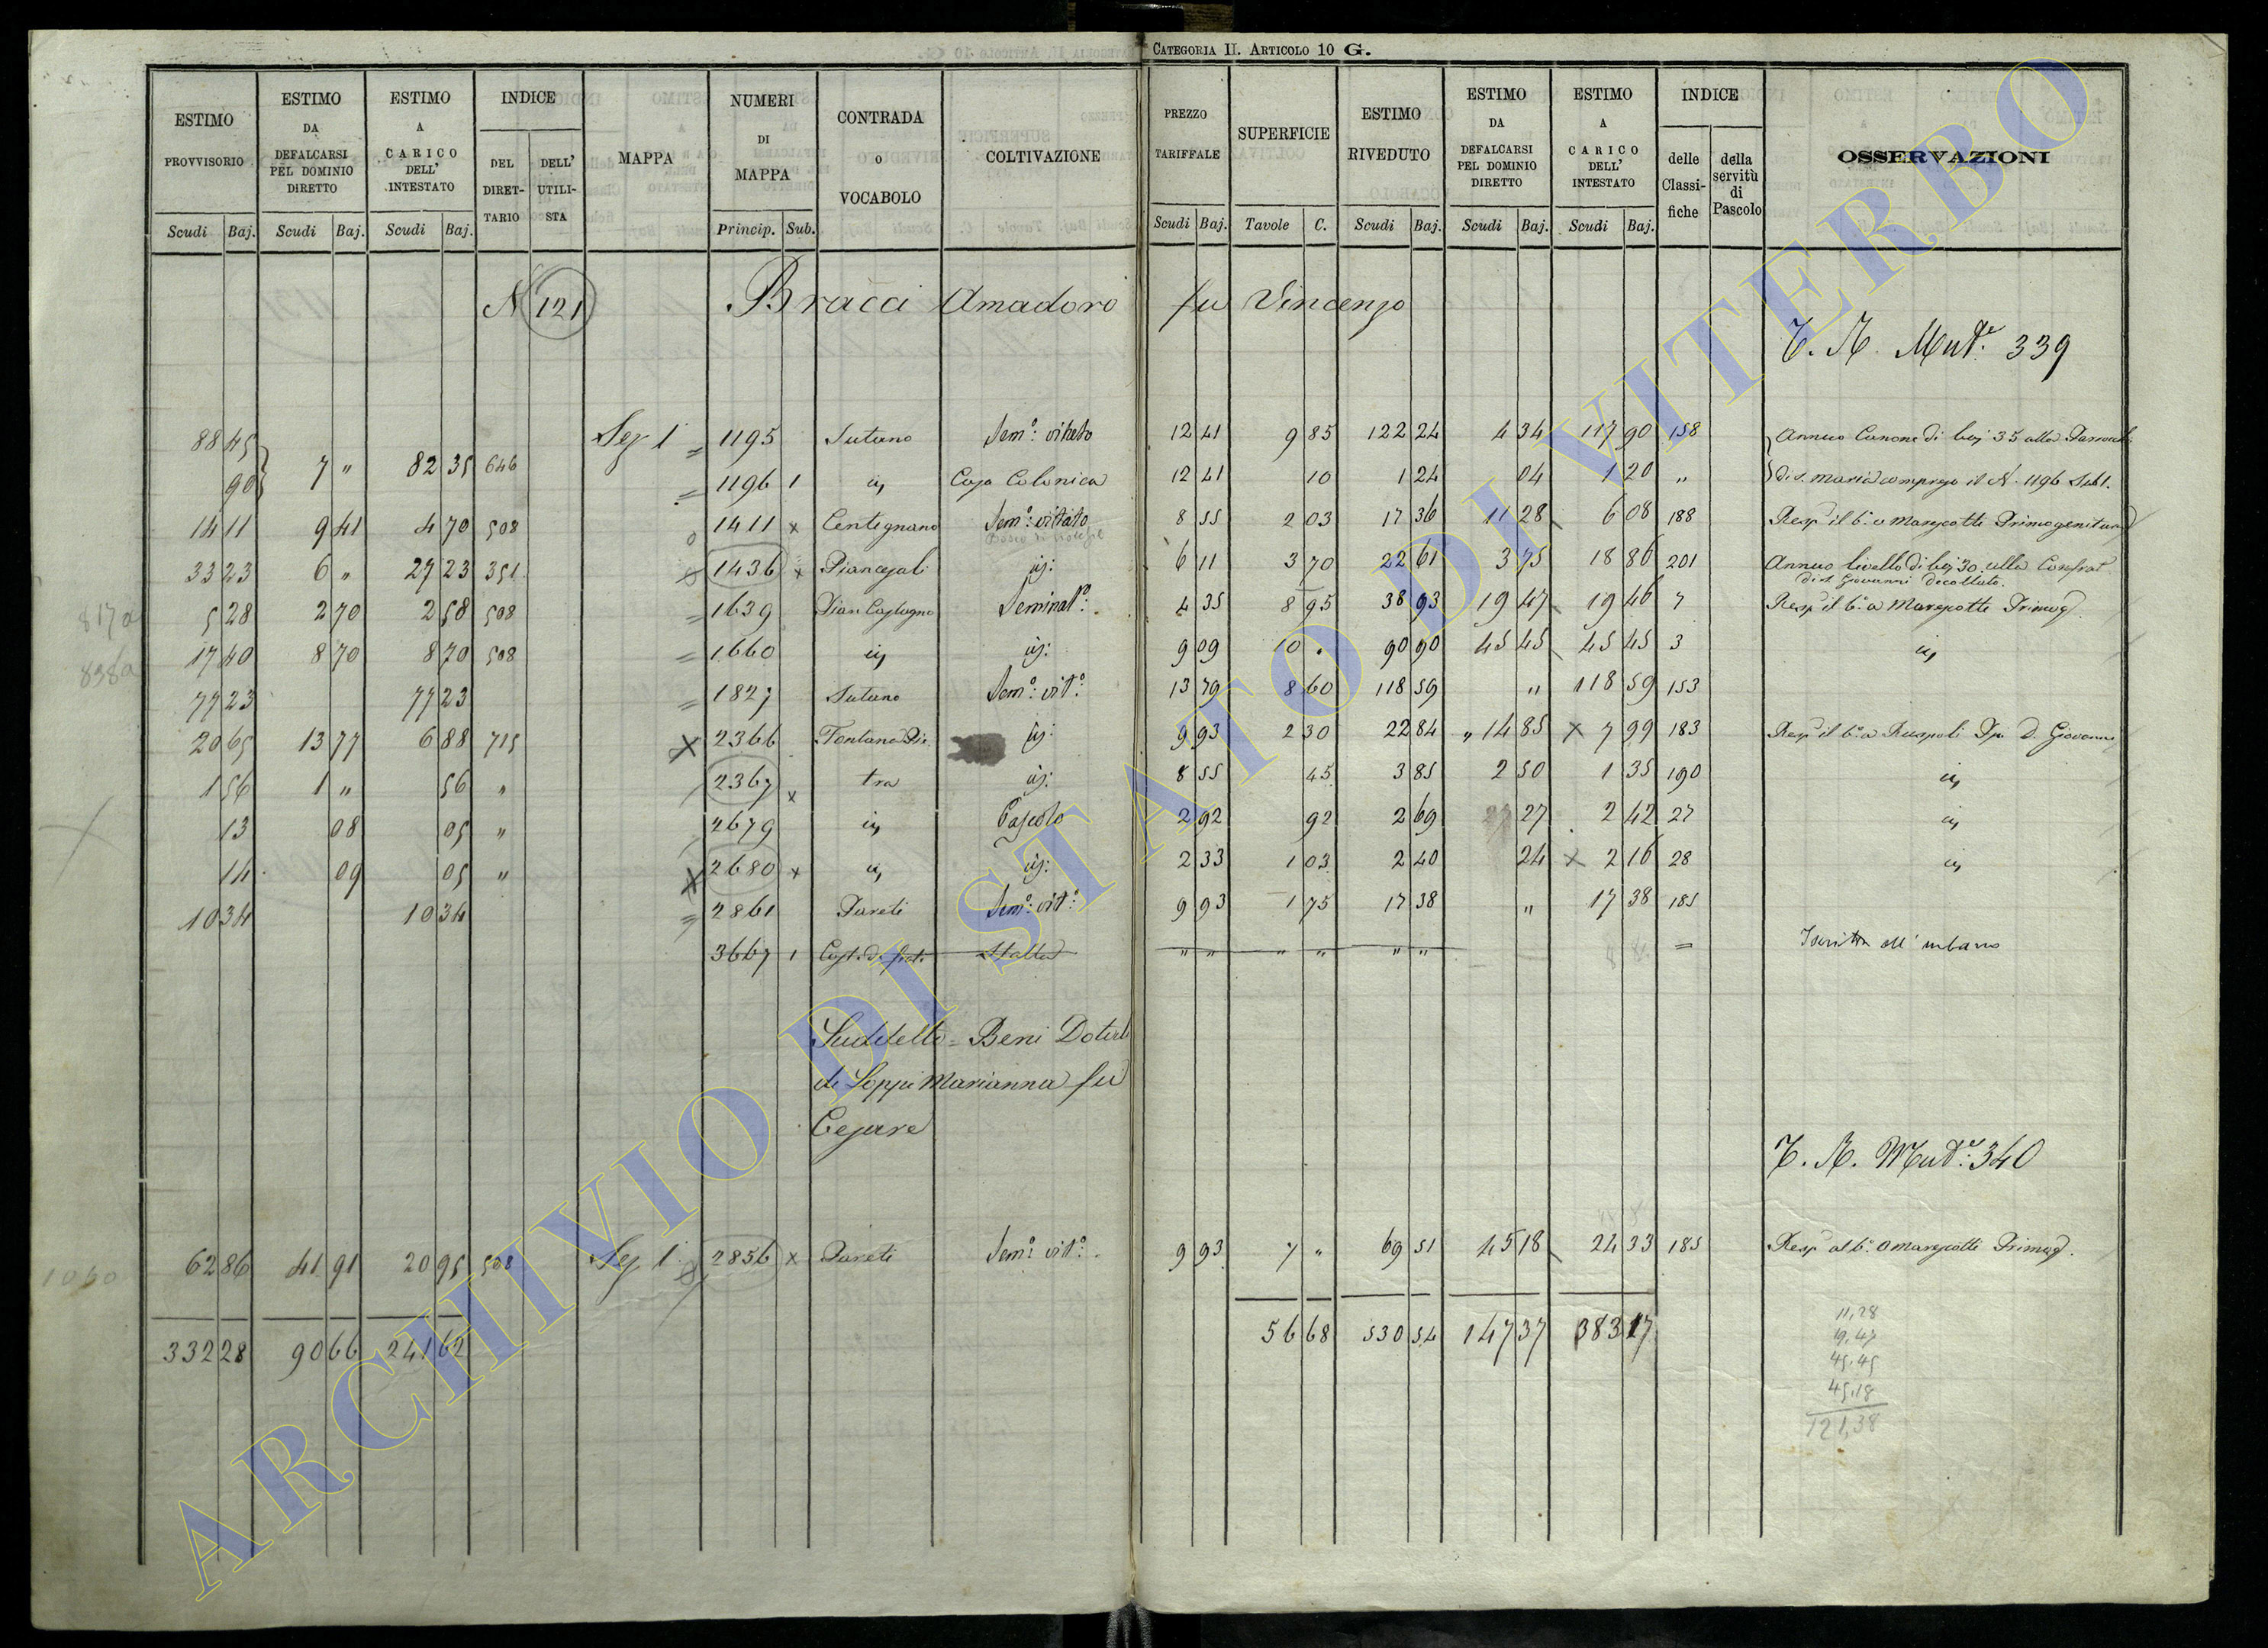 CATEGORIA II. ARTICOLO 10 G.
ESTIMO PROVVISORIO Scudi Baj. ESTIMO DA DEFALCARSI PEL DOMINIO DIRETTO Scudi Baj. ESTIMO A CARICO DELL' INTESTATO Scudi Baj. INDICE DEL DIRETTARIO DELL' UTILISTA MAPPA NUMERI DI MAPPA Princip. Sub. CONTRADA O VOCABOLO COLTIVAZIONE PREZZO TARIFFALE Scudi Baj. SUPERFICIE Tavole C. ESTIMO RIVEDUTO Scudi Baj. ESTIMO DA DEFALCARSI PEL DOMINIO DIRETTO Scudi Baj. ESTIMO A CARICO DELL' INTESTATO Scudi Baj. INDICE delle Classifiche della servitù di Pascolo OSSERVAZIONI
N 121 Bracci Amadoro fu Vincenzo
T. N. Mutᵉ: 339
88 45 Sez 1ª = 1195 Sutuno Semº: vitato 12 41 9 85 122 24 4 34 117 90 158 Annuo Canone di baj 35 alla Parrocch
90 7 " 82 35 646 = 1196 1 id, Casa Colonica 12 41 10 1 24 04 1 20 " di S. Maria compreso il N. 1196 Sub 1.
14 11 9 41 4 70 508 o 1411 x Centignano Semº: vitato 8 55 2 03 17 36 11 28 6 08 188 Risp il 6º a Marescotti Primogenitura
33 23 6 " 27 23 351 1436 x Piancasali id: 6 11 3 70 22 61 3 75 18 86 201 Annuo livello di baj 30 alla Confrat
di S. Giovanni Decollato.
817a 5 28 2 70 2 58 508 = 1639 Pian Castagno Seminatº: 4 35 8 95 38 93 19 47 19 46 7 Risp il 6º a Marescotti Primog.
838a 17 40 8 70 8 70 508 = 1660 id, id: 9 09 10 . 90 90 45 45 45 45 3 id,
77 23 77 23 = 1827 Sutuno Semº: vitº: 13 79 8 60 118 59 " 118 59 153
20 65 13 77 6 88 715 x 2366 Fontana Pie id: 9 93 2 30 22 84 " 14 85 x 7 99 183 Risp il 6º a Ruspoli Ppe D. Giovanni
1 56 1 " 56 " 2367 x tra id: 8 55 45 3 85 2 50 1 35 190 id,
13 08 05 " 2679 id, Pascolo 2 92 92 2 69 27 2 42 27 id,
14 09 05 " x 2680 x id, id: 2 33 1 03 2 40 24 x 2 16 28 id,
10 34 10 34 = 2861 Pareti Semº: vitº: 9 93 1 75 17 38 " 17 38 185
3667 1 Stalla " " " " " " = Iscritta all' urbano
Suddetto = Beni Dotali
di Soppi Marianna fu
Cesare
T. N. Mutᵉ: 340
1060 62 86 41 91 20 95 508 Sez 1ª 2856 x Pareti Semº: vitº: 9 93 7 " 69 51 45 18 24 33 185 Risp al 6º a Marescotti Primog.
332 28 90 66 241 62 56 68 530 54 147 37 383 17
11,28
19,47
45,45
45,18
121,38
ARCHIVIO DI STATO DI VITERBO